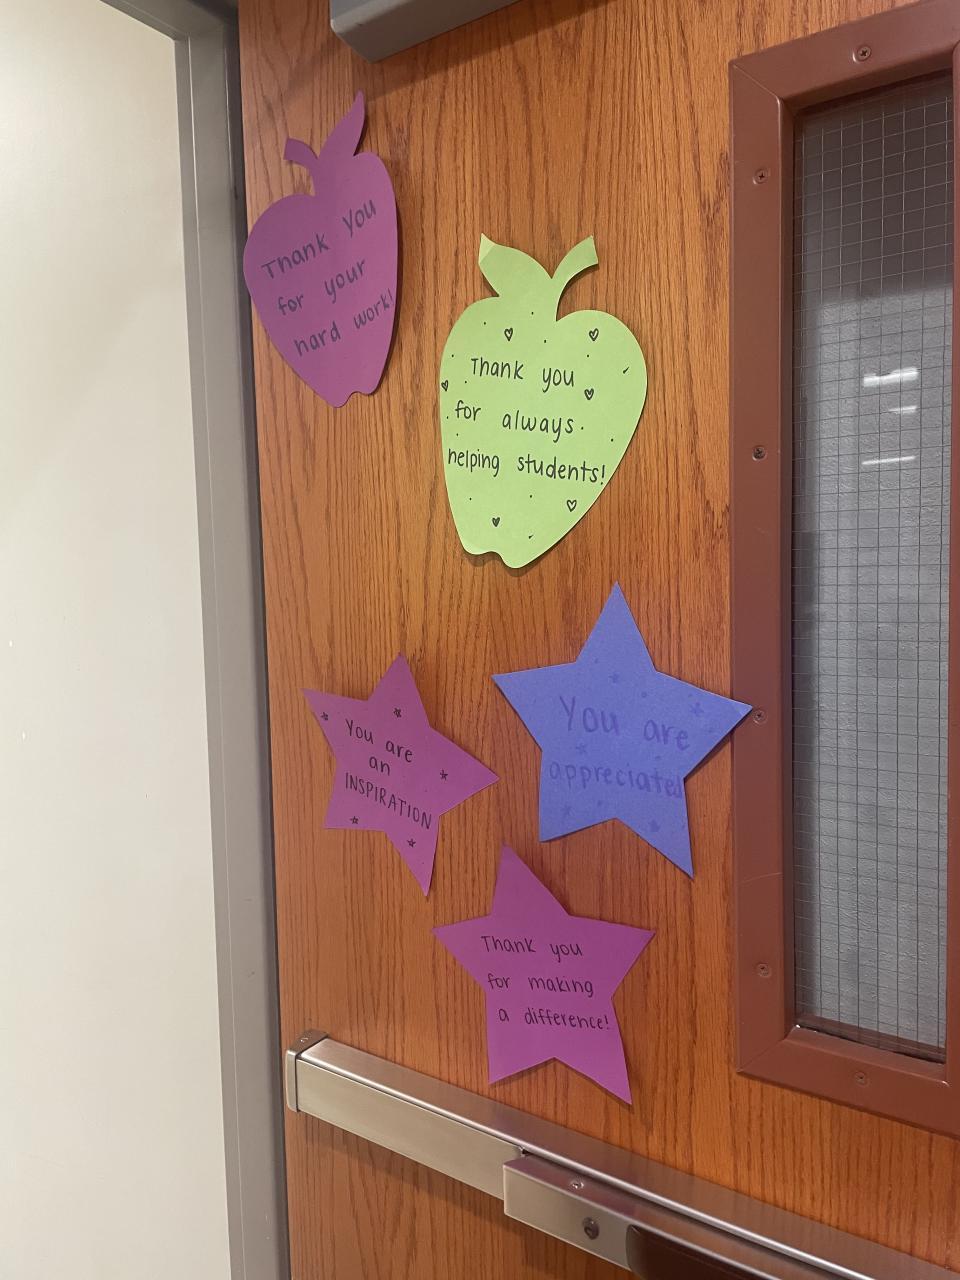 Thank you
for your
hard work!
Thank you
for always
helping students!
You are
an
INSPIRATION
You are
appreciated
Thank you
for making
a difference!